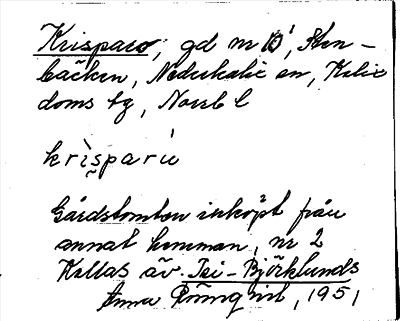 Krisparo, gd nr 10¹, Sten-
bäcken, Nederkalix sn, Kalix
doms tg, Norrb l
krìsparù
Gårdstomten inköpt från
annat hemman, nr 2
Kallas äv. Isi-Björklunds
Anna Rönnqvist, 1951